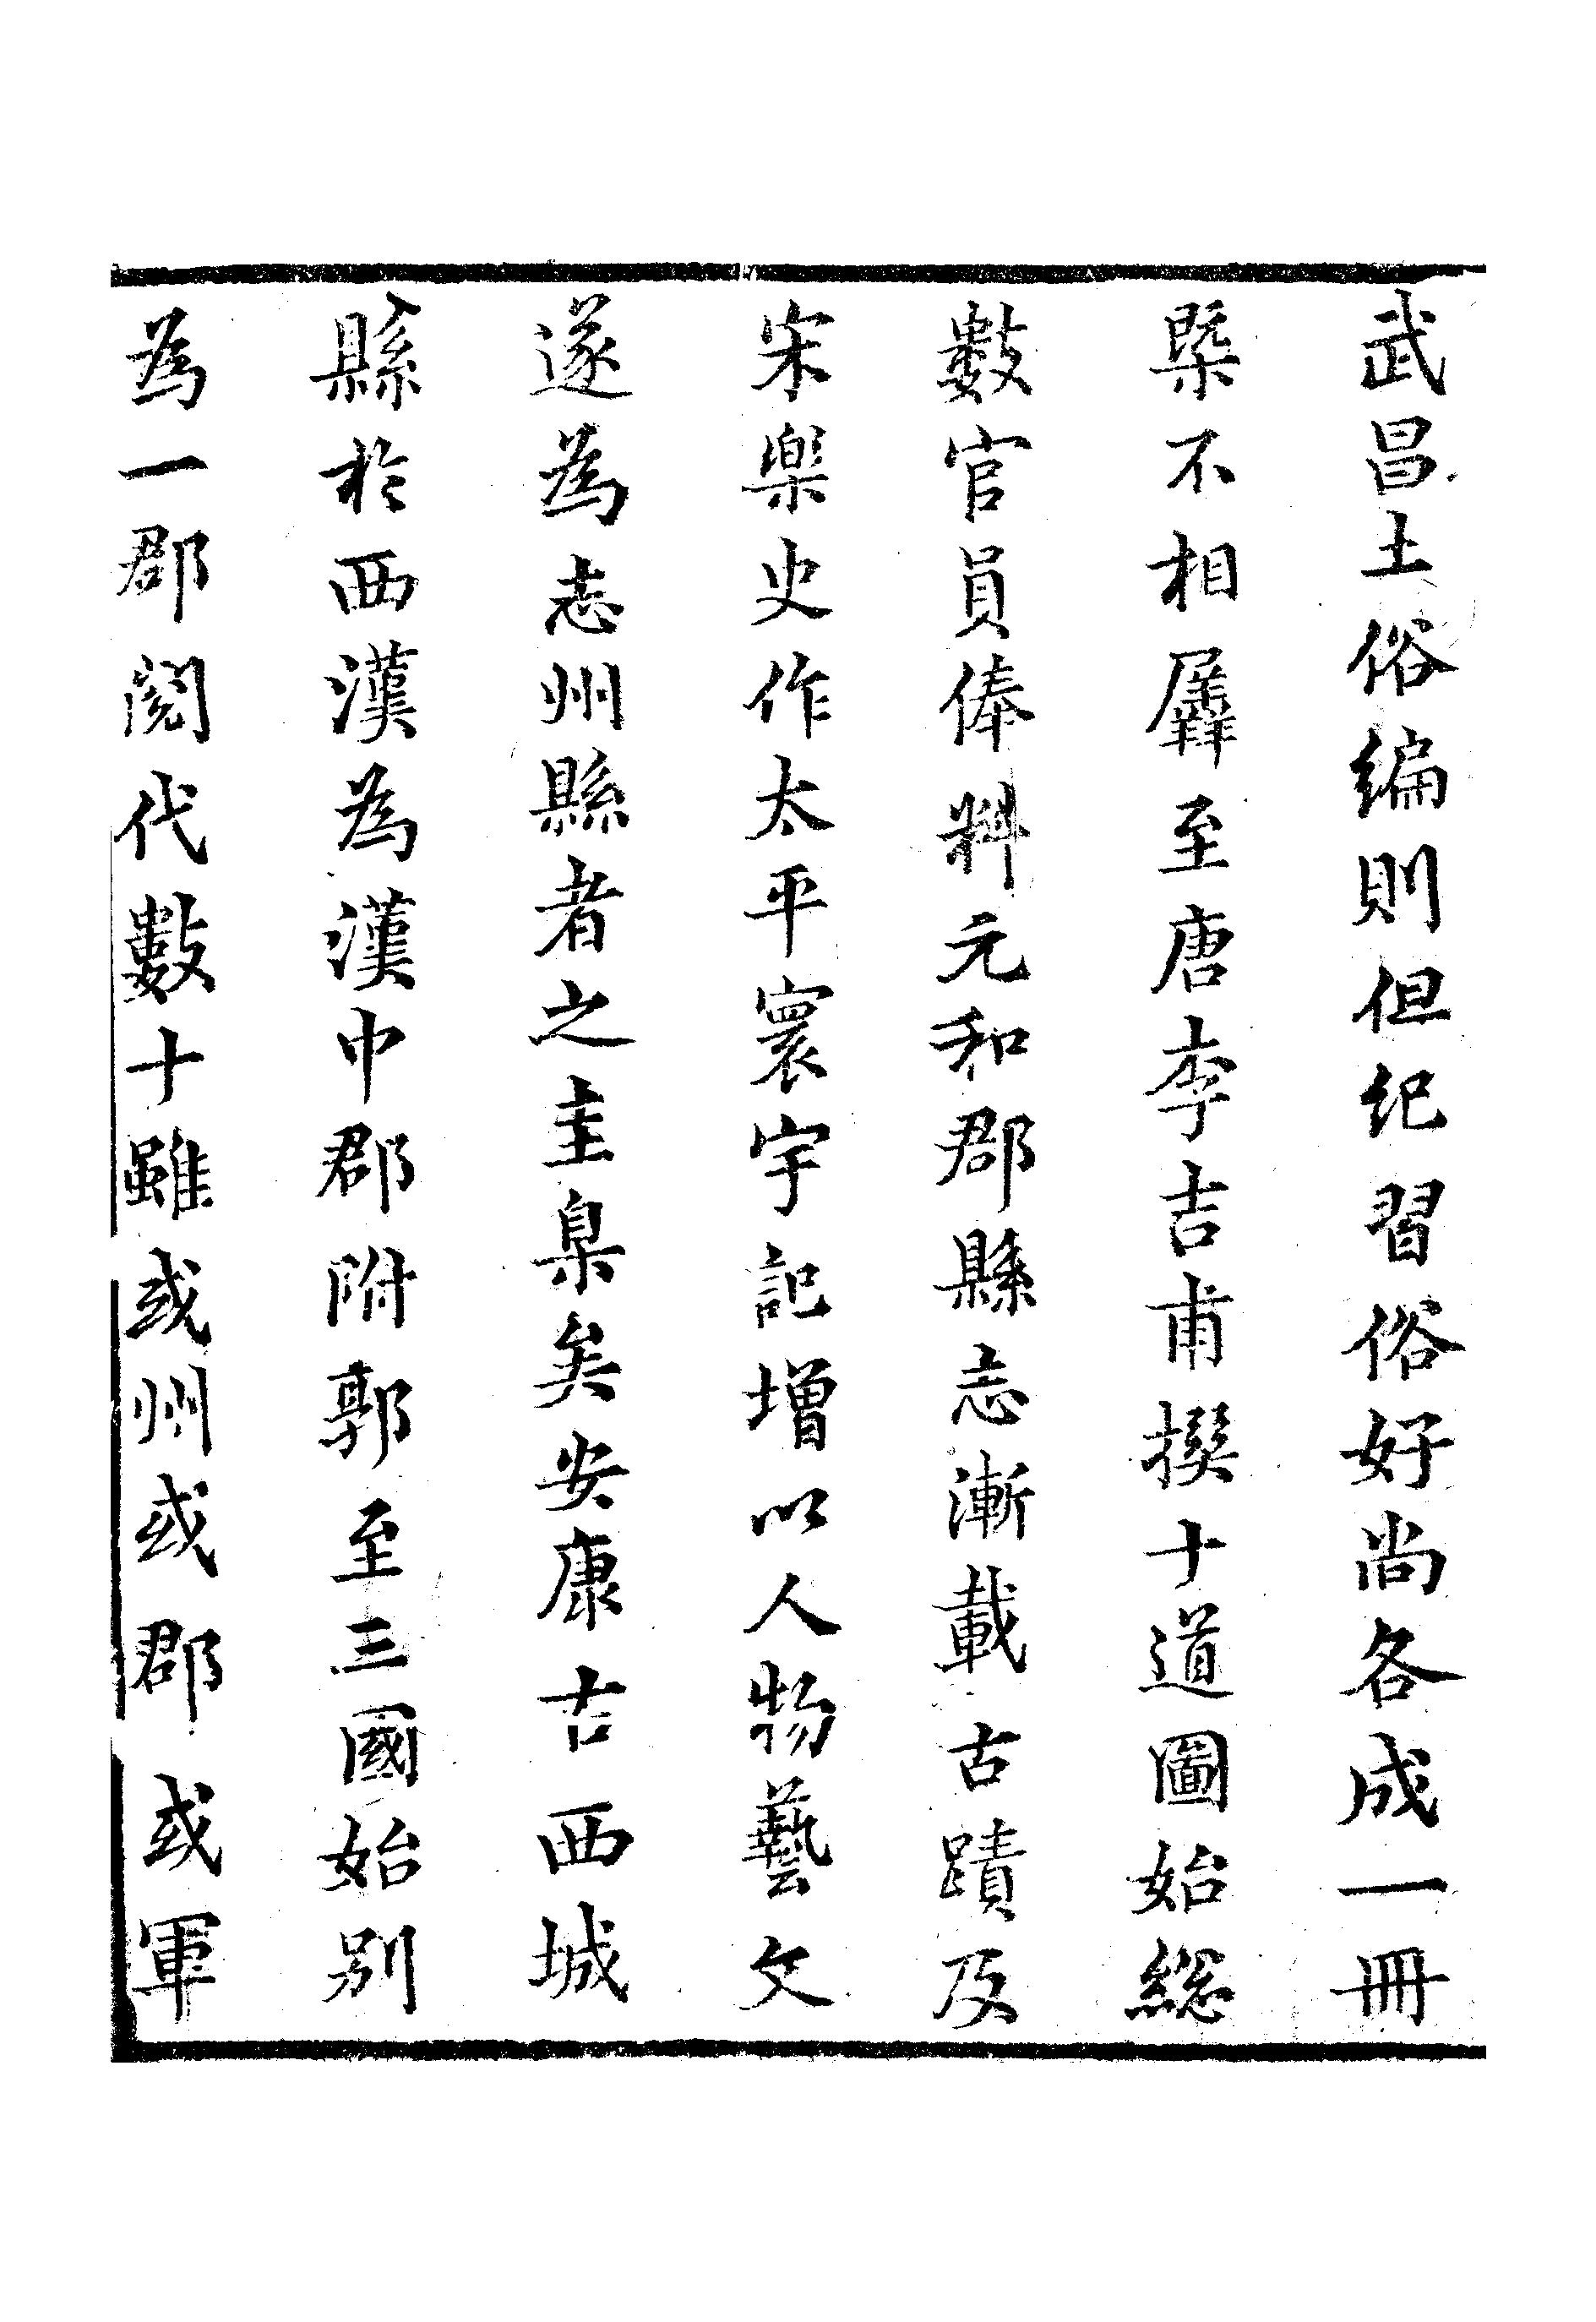 武昌土俗編則但紀習俗好尚各成一冊
槩不相羼至唐李吉甫撰十道圖始總
數官員俸料元和郡縣志漸載古蹟及
宋樂史作太平寰宇記增以人物藝文
遂為志州縣者之圭臬矣安康古西城
縣於西漢為漢中郡附郭至三國始別
為一郡閱代數十雖或州或郡或軍